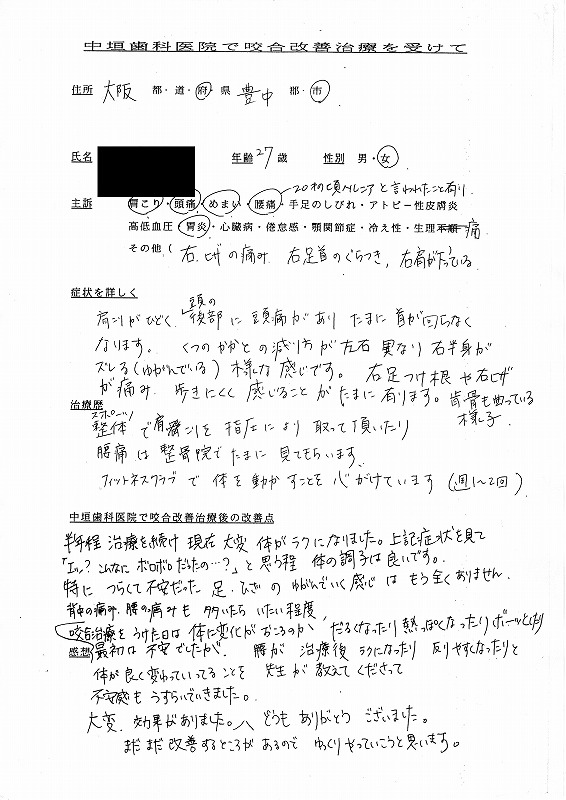 中垣歯科医院で咬合改善治療を受けて
住所 大阪 都・道・府・県 豊中 郡・市
氏名 年齢 27歳 性別 男・女
20才頃ヘルニアと言われたこと有り
主訴 肩こり・頭痛・めまい・腰痛・手足のしびれ・アトピー性皮膚炎
高低血圧・胃炎・心臓病・倦怠感・顎関節症・冷え性・生理不順 痛
その他(右ヒザの痛み 右足首のぐらつき、右肩が下っている
症状を詳しく
肩こりがひどく、頭の後部に頭痛があり たまに首が回らなく
なります。 くつのかかとの減り方が左右異なり右半身が
ズレる(ゆがんでいる)様な感じです。 右足つけ根や右ヒザ
が痛み、歩きにくく感じることがたまに有ります。歯骨も曲っている
様子
治療歴
スポーツ
整体で肩こりを指圧により取って頂いたり
腰痛は整骨院でたまに見てもらいます。
フィットネスクラブで体を動かすことを心がけています(週1〜2回)
中垣歯科医院で咬合改善治療後の改善点
半年程治療を続け現在大変体がラクになりました。上記症状を見て
「エッ?こんなにボロボロだたの…?」と思う程 体の調子は良いです。
特につらくて不安だった足・ひざのゆがんでいく感じはもう全くありません。
背中の痛み、腰の痛みも
咬合治療をうけた日は 体に変化がおこるのか、だるくなったり熱っぽくなったりボーッとしたり
感想 最初は不安でしたが、腰が治療後ラクになったり反りやすくなったりと
体が良く変わっていってることを 先生が教えてくださって
不安感もうすらいでいきました。
大変、効果がありました。 どうもありがとうございました。
まだまだ改善するところがあるので ゆっくりやっていこうと思います。